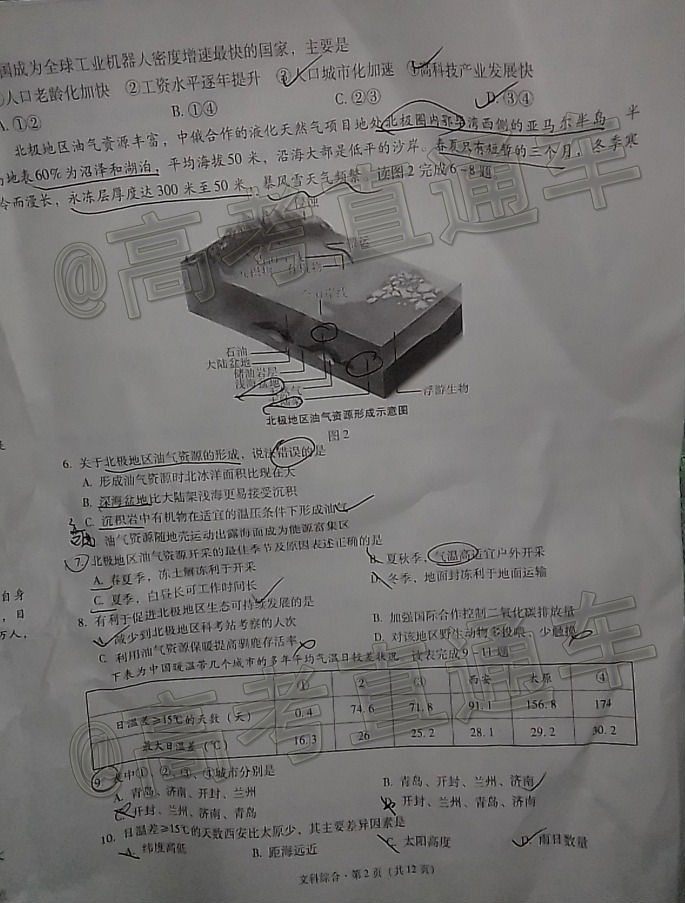 国成为全球工业机器人密度增速最快的国家，主要是
①人口老龄化加快 ②工资水平逐年提升 ③人口城市化加速 ④高科技产业发展快
A. ①② B. ①④ C. ②③ D. ③④
北极地区油气资源丰富，中俄合作的液化天然气项目地处北极圈内鄂毕湾西侧的亚马尔半岛 半
岛地表60%为沼泽和湖泊，平均海拔50米，沿海大部是低平的沙岸。春夏只有短暂的三个月，冬季寒
冷而漫长，永冻层厚度达300米至50米，暴风雪天气频繁。读图2完成6~8题
侵蚀
搬运
石油
大陆盆地
储油岩层
浅海盆地
天然气
大陆架
浮游生物
北极地区油气资源形成示意图
图2
6. 关于北极地区油气资源的形成，说法错误的是
A. 形成油气资源时北冰洋面积比现在大
B. 深海盆地比大陆架浅海更易接受沉积
C. 沉积岩中有机物在适宜的温压条件下形成油气
油气资源随地壳运动出露海面成为能源富集区
7. 北极地区油气资源开采的最佳季节及原因表述正确的是
A. 春夏季，冻土解冻利于开采 B. 夏秋季，气温高适宜户外开采
C. 夏季，白昼长可工作时间长 D. 冬季，地面封冻利于地面运输
8. 有利于促进北极地区生态可持续发展的是
减少到北极地区科考站考察的人次 B. 加强国际合作控制二氧化碳排放量
C 利用油气资源保暖提高驯鹿存活率 D. 对该地区野生动物多投喂、少触摸
下表为中国暖温带几个城市的多年年均气温日较差状况。读表完成9~11题
① 2 ③ 西安 太原 ④
日温差≥15℃的天数（天） 0.4 74.6 71.8 91.1 156.8 174
最大日温差（℃） 16.3 26 25.2 28.1 29.2 30.2
9. 表中①、②、③、④城市分别是
A. 青岛、济南、开封、兰州 B. 青岛、开封、兰州、济南
C. 开封、兰州、济南、青岛 D. 开封、兰州、青岛、济南
10. 日温差≥15℃的天数西安比太原少，其主要差异因素是
A. 纬度高低 B. 距海远近 C. 太阳高度 D. 雨日数量
文科综合·第2页（共12页）
自身
，目
万人，
@高考直通车
@高考直通车